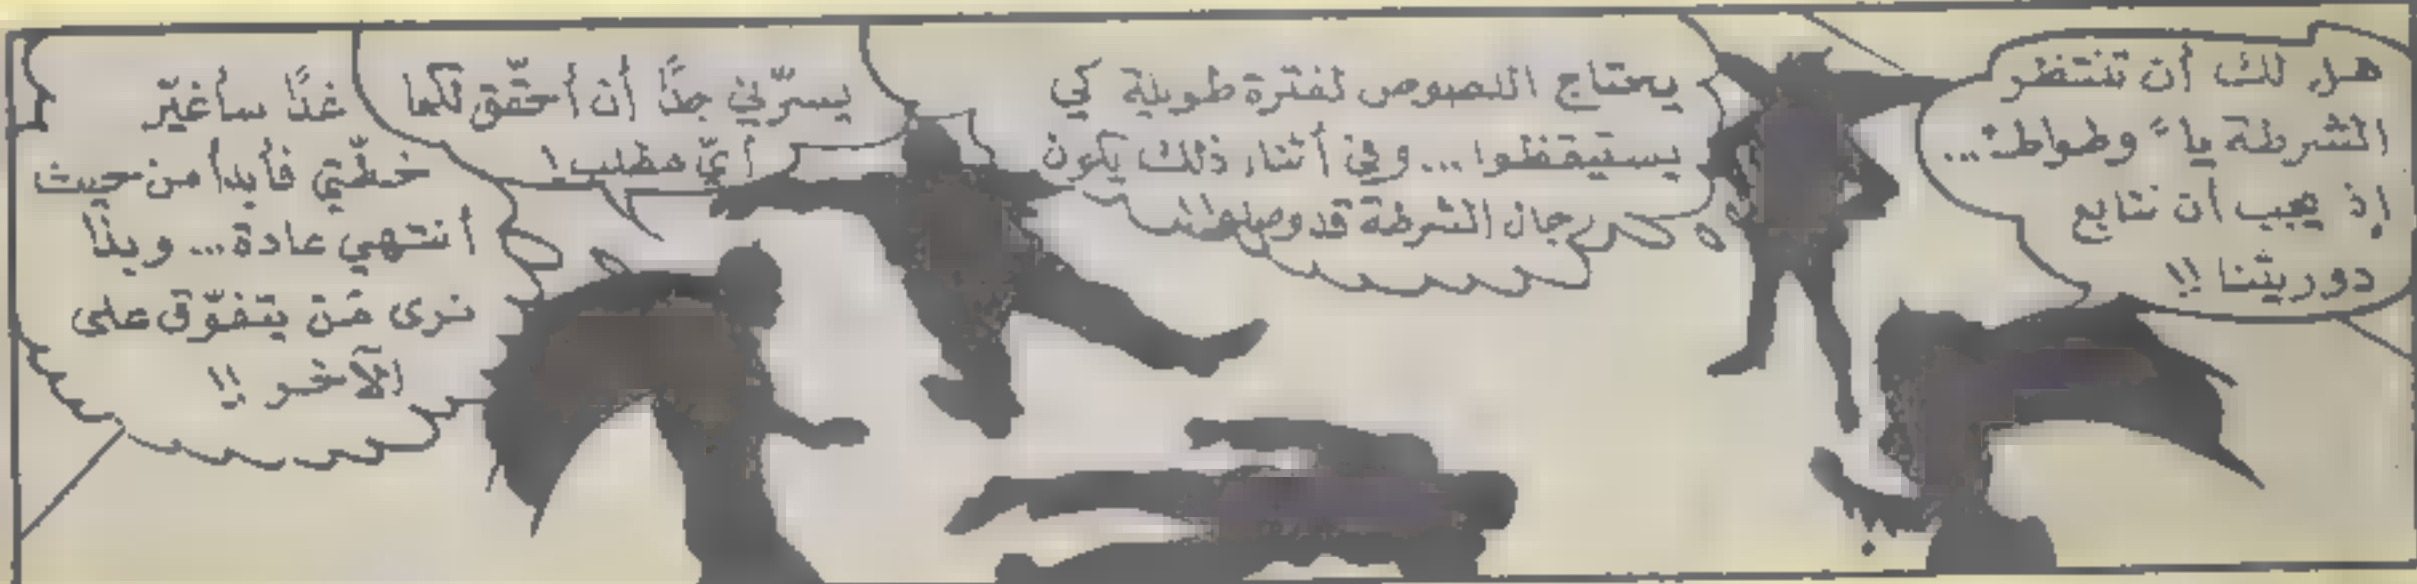 هل لك أن تنتظر
الشرطة يا "وطواط"...
إذ يجب أن نتابع
دوريتنا !!
يحتاج اللصوص لفترة طويلة كي
يستيقظوا ... وفي أثناء ذلك يكون
رجال الشرطة قد وصلوا
يسرّني جدًّا أن أحقّق لكما
أيّ مطلب !
غدًا سأغيّر
خطّتي فأبدأ من حيث
أنتهي عادة ... وبذا
نرى مَن يتفوّق على
الآخر !!